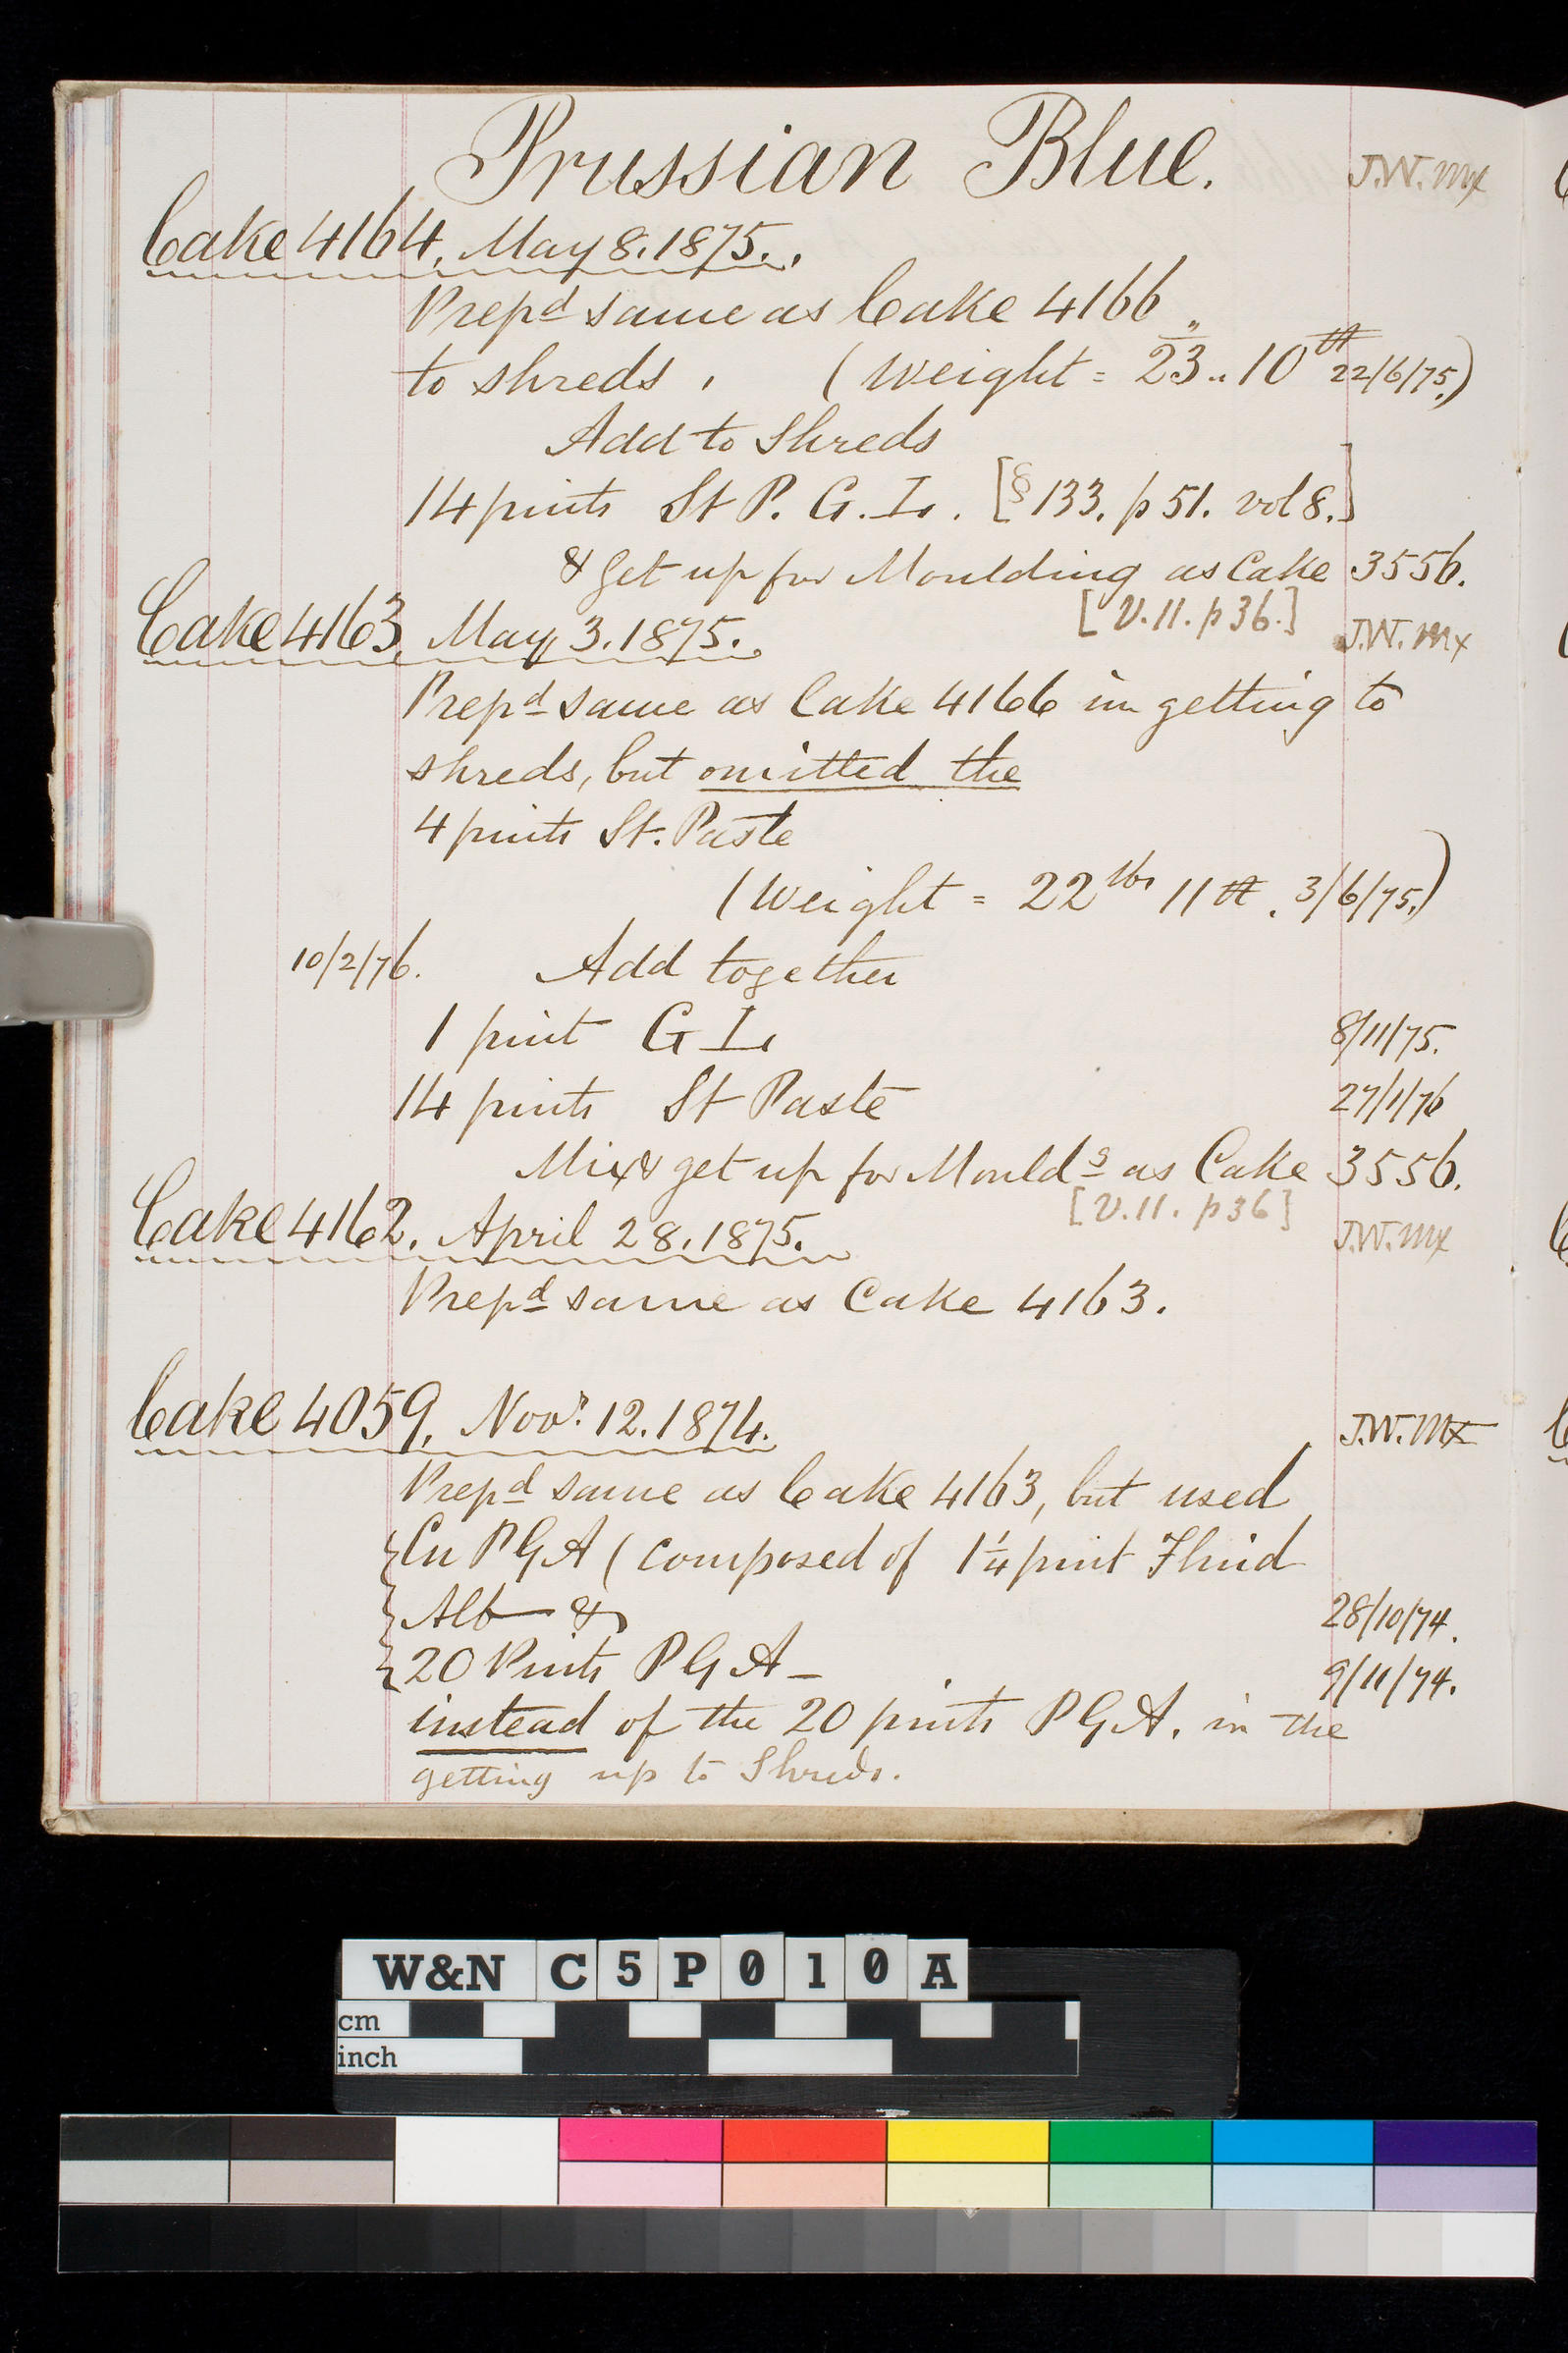 Prussian Blue.
J.W. Mx
Cake 4164. May 8. 1875.
Prepd same as Cake 4166
to shreds, (Weight = 23 .. 10 22/6/75.)
Add to Shreds
14 pints St P. G. L. [§ 133. p 51. vol 8.]
& get up for Moulding as Cake 3556.
[V. 11. p 36.]
Cake 4163 May 3. 1875. J.W. Mx
Prepd same as Cake 4166 in getting to
shreds, but omitted the
4 pints St. Paste
(Weight = 22 lbs 11 . 3/6/75.)
10/2/76. Add together
1 pint G L. 8/11/75.
14 pints St Paste 27/1/76
Mix & get up for Mouldg as Cake 3556.
[V. 11. p 36]
Cake 4162. April 28. 1875. J.W. Mx
Prepd same as Cake 4163.
Cake 4059. Novr. 12. 1874. J.W. Mx
Prepd same as Cake 4163, but used
Cn P G A (composed of 1 1/4 pint Fluid
Alb & 28/10/74.
20 Pints P G A – 9/11/74.
instead of the 20 pints P G A. in the
getting up to Shreds.
W&N C5P010A
cm
inch